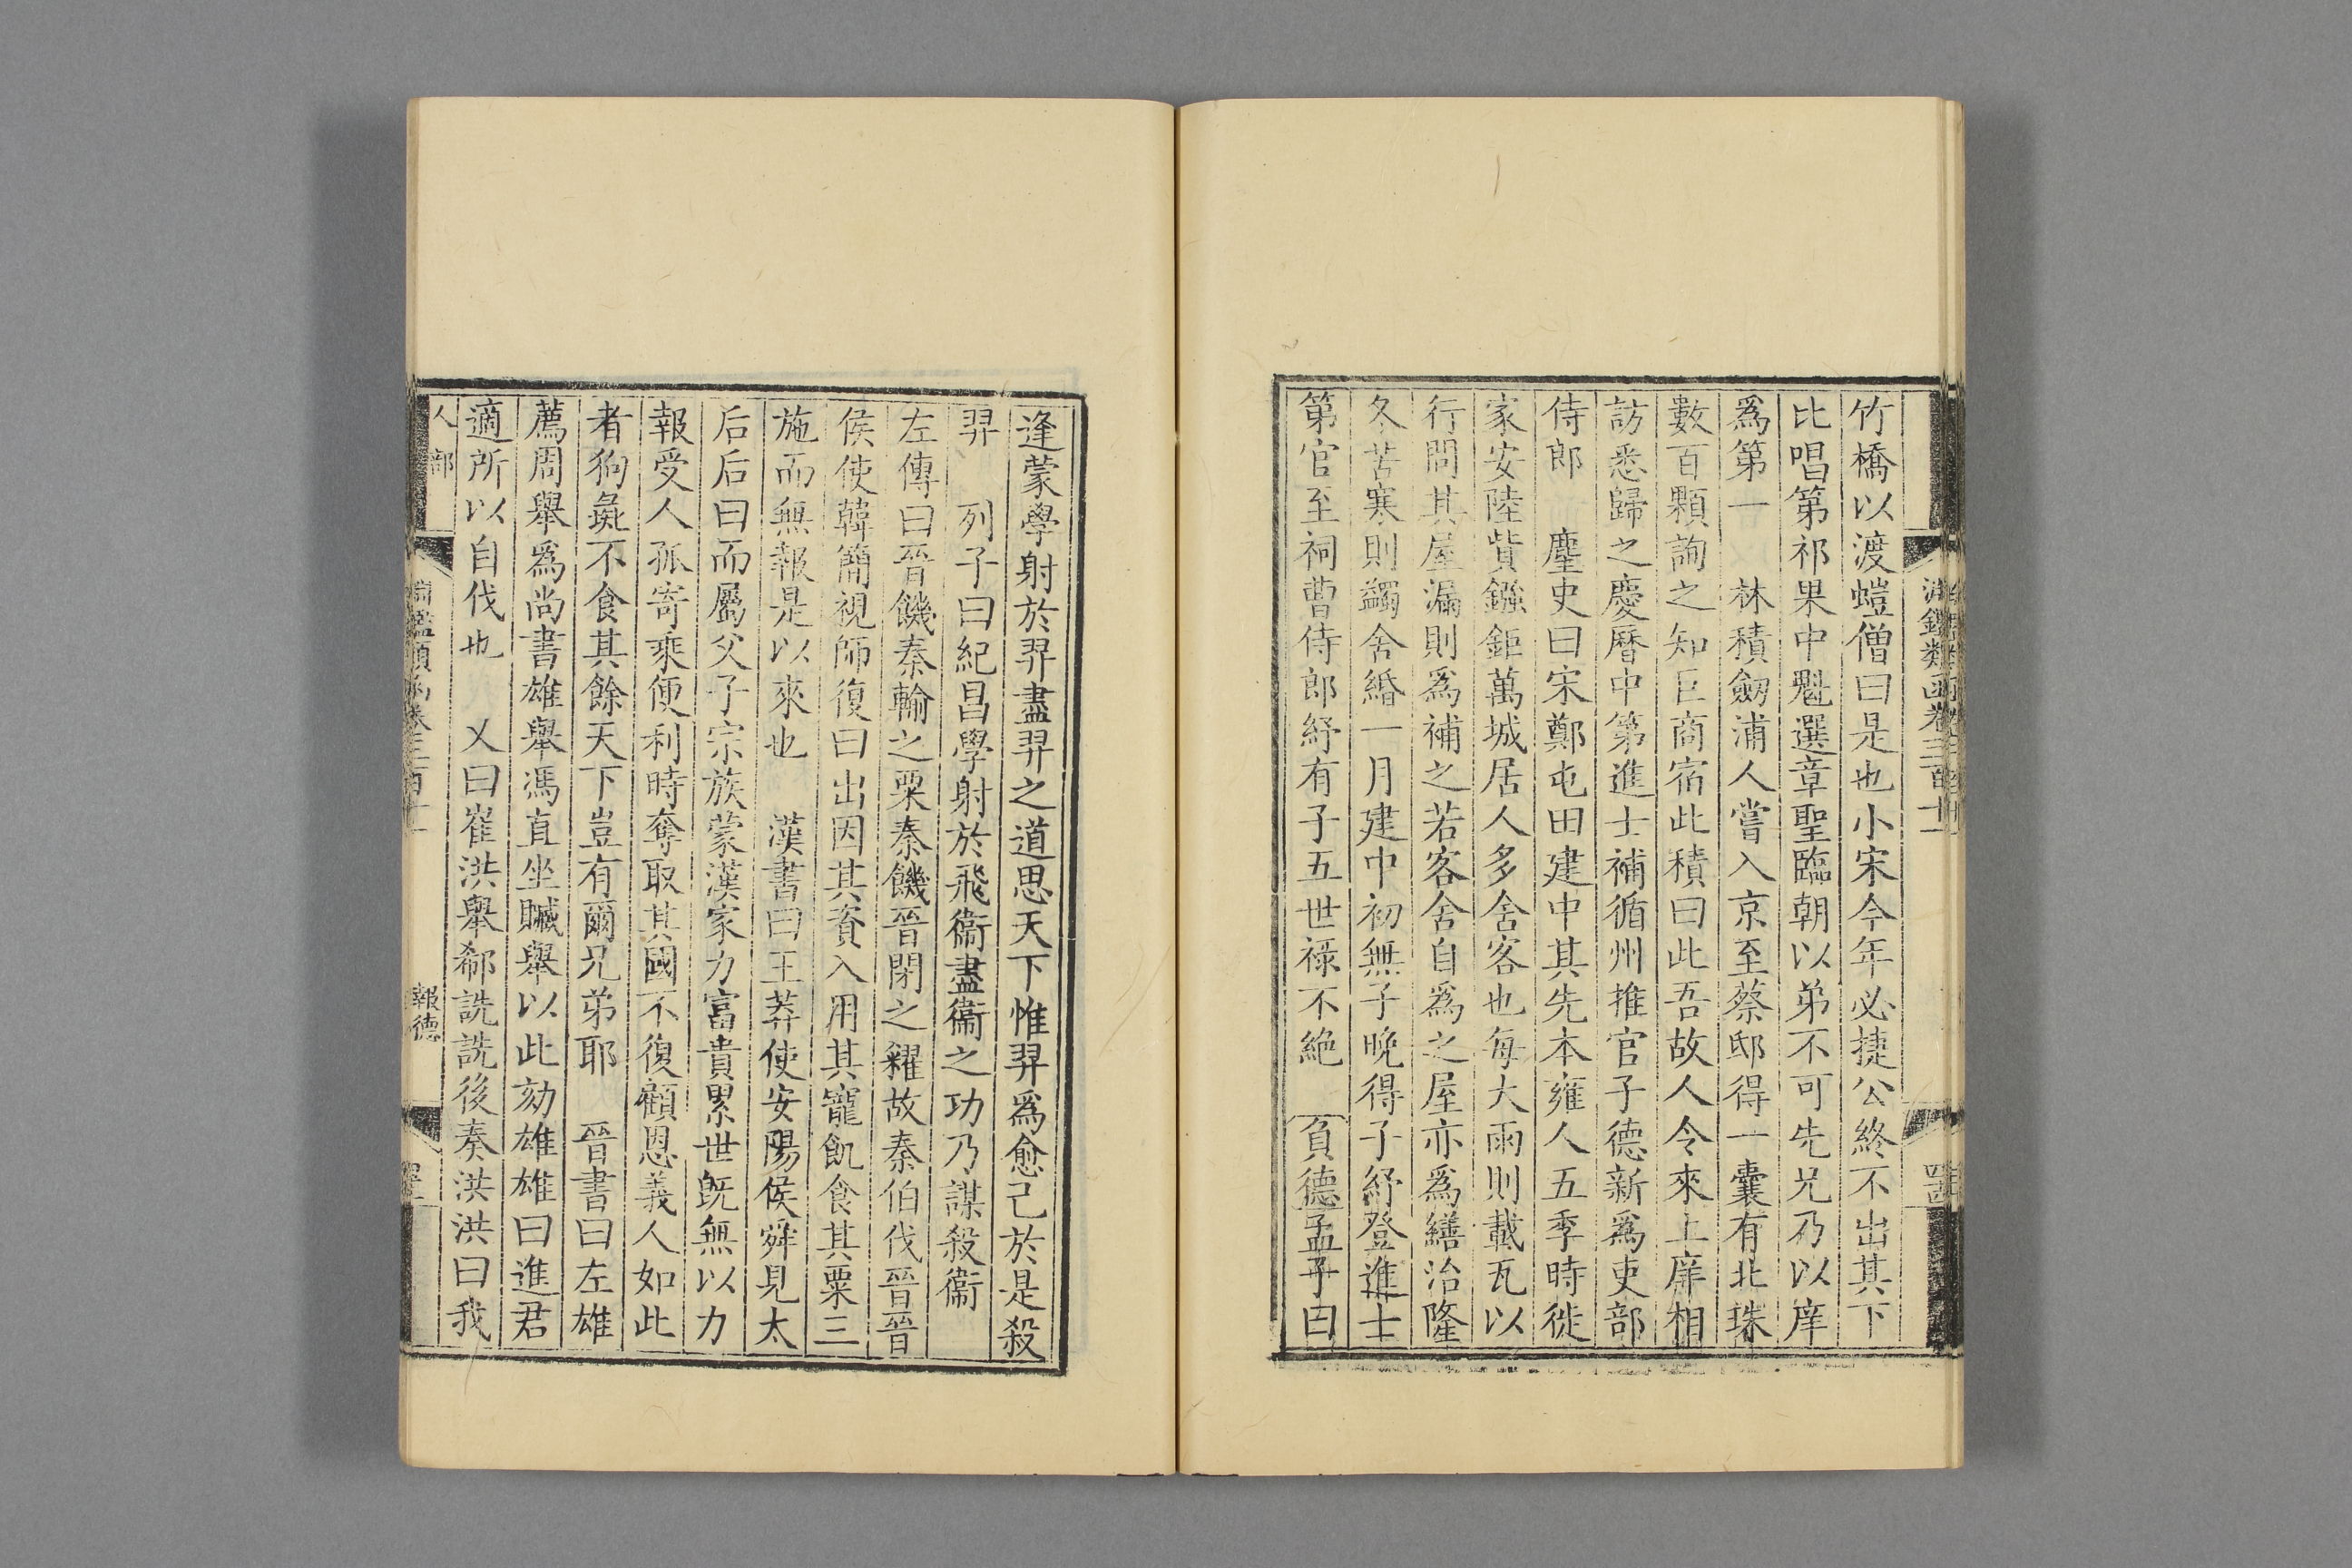 淵鑑類函卷三百十一
竹橋以渡螘僧曰是也小宋今年必捷公終不出其下
比唱第祁果中魁選章聖臨朝以弟不可先兄乃以庠
爲第一 林積劒浦人嘗入京至蔡邸得一囊有北珠
數百顆詢之知巨商宿此積曰此吾故人令來上庠相
訪悉歸之慶曆中第進士補循州推官子德新爲吏部
侍郎 麈史曰宋鄭屯田建中其先本雍人五季時徙
家安陸貲鏹鉅萬城居人多舍客也每大雨則載瓦以
行問其屋漏則爲補之若客舍自爲之屋亦爲繕治隆
冬苦寒則蠲舍緡一月建中初無子晚得子紓登進士
第官至祠曹侍郎紓有子五世祿不絶 負德孟子曰
逢蒙學射於羿盡羿之道思天下惟羿爲愈己於是殺
羿 列子曰紀昌學射於飛衞盡衞之功乃謀殺衞
左傳曰晉饑秦輸之粟秦饑晉閉之糴故秦伯伐晉晉
侯使韓簡視師復曰出因其資入用其寵飢食其粟三
施而無報是以來也 漢書曰王莽使安陽侯舜見太
后后曰而屬父子宗族蒙漢家力富貴累世旣無以力
報受人孤寄乘便利時奪取其國不復顧恩義人如此
者狗彘不食其餘天下豈有爾兄弟耶 晉書曰左雄
薦周舉爲尚書雄舉馮直坐贓舉以此劾雄雄曰進君
適所以自伐也 又曰崔洪舉郄詵詵後奏洪洪曰我
人部 淵鑑類函卷三百十一 報德